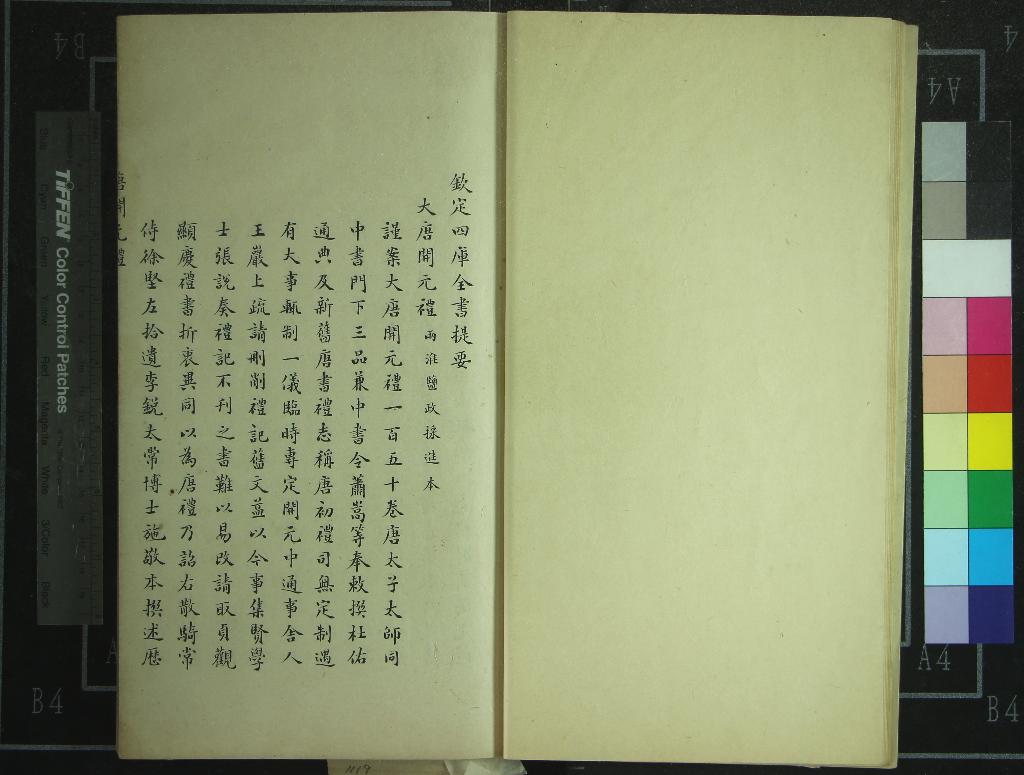 欽定四庫全書提要
大唐開元禮 兩淮鹽政採進本
謹案大唐開元禮一百五十卷唐太子太師同
中書門下三品兼中書令蕭嵩等奉敕撰杜佑
通典及新舊唐書禮志稱唐初禮司無定制遇
有大事輒制一儀臨時專定開元中通事舍人
王嵒上疏請刪削禮記舊文益以今事集賢學
士張說奏禮記不刋之書難以易改請取貞觀
顯慶禮書折衷異同以為唐禮乃詔右散騎常
侍徐堅左拾遺李銳太常博士施敬本撰述歷
唐開元禮
TIFFEN Color Control Patches
Blue
Cyan
Green
Yellow
Red
Magenta
White
3/Color
Black
B4
A4
4
B4
A4
B4
A